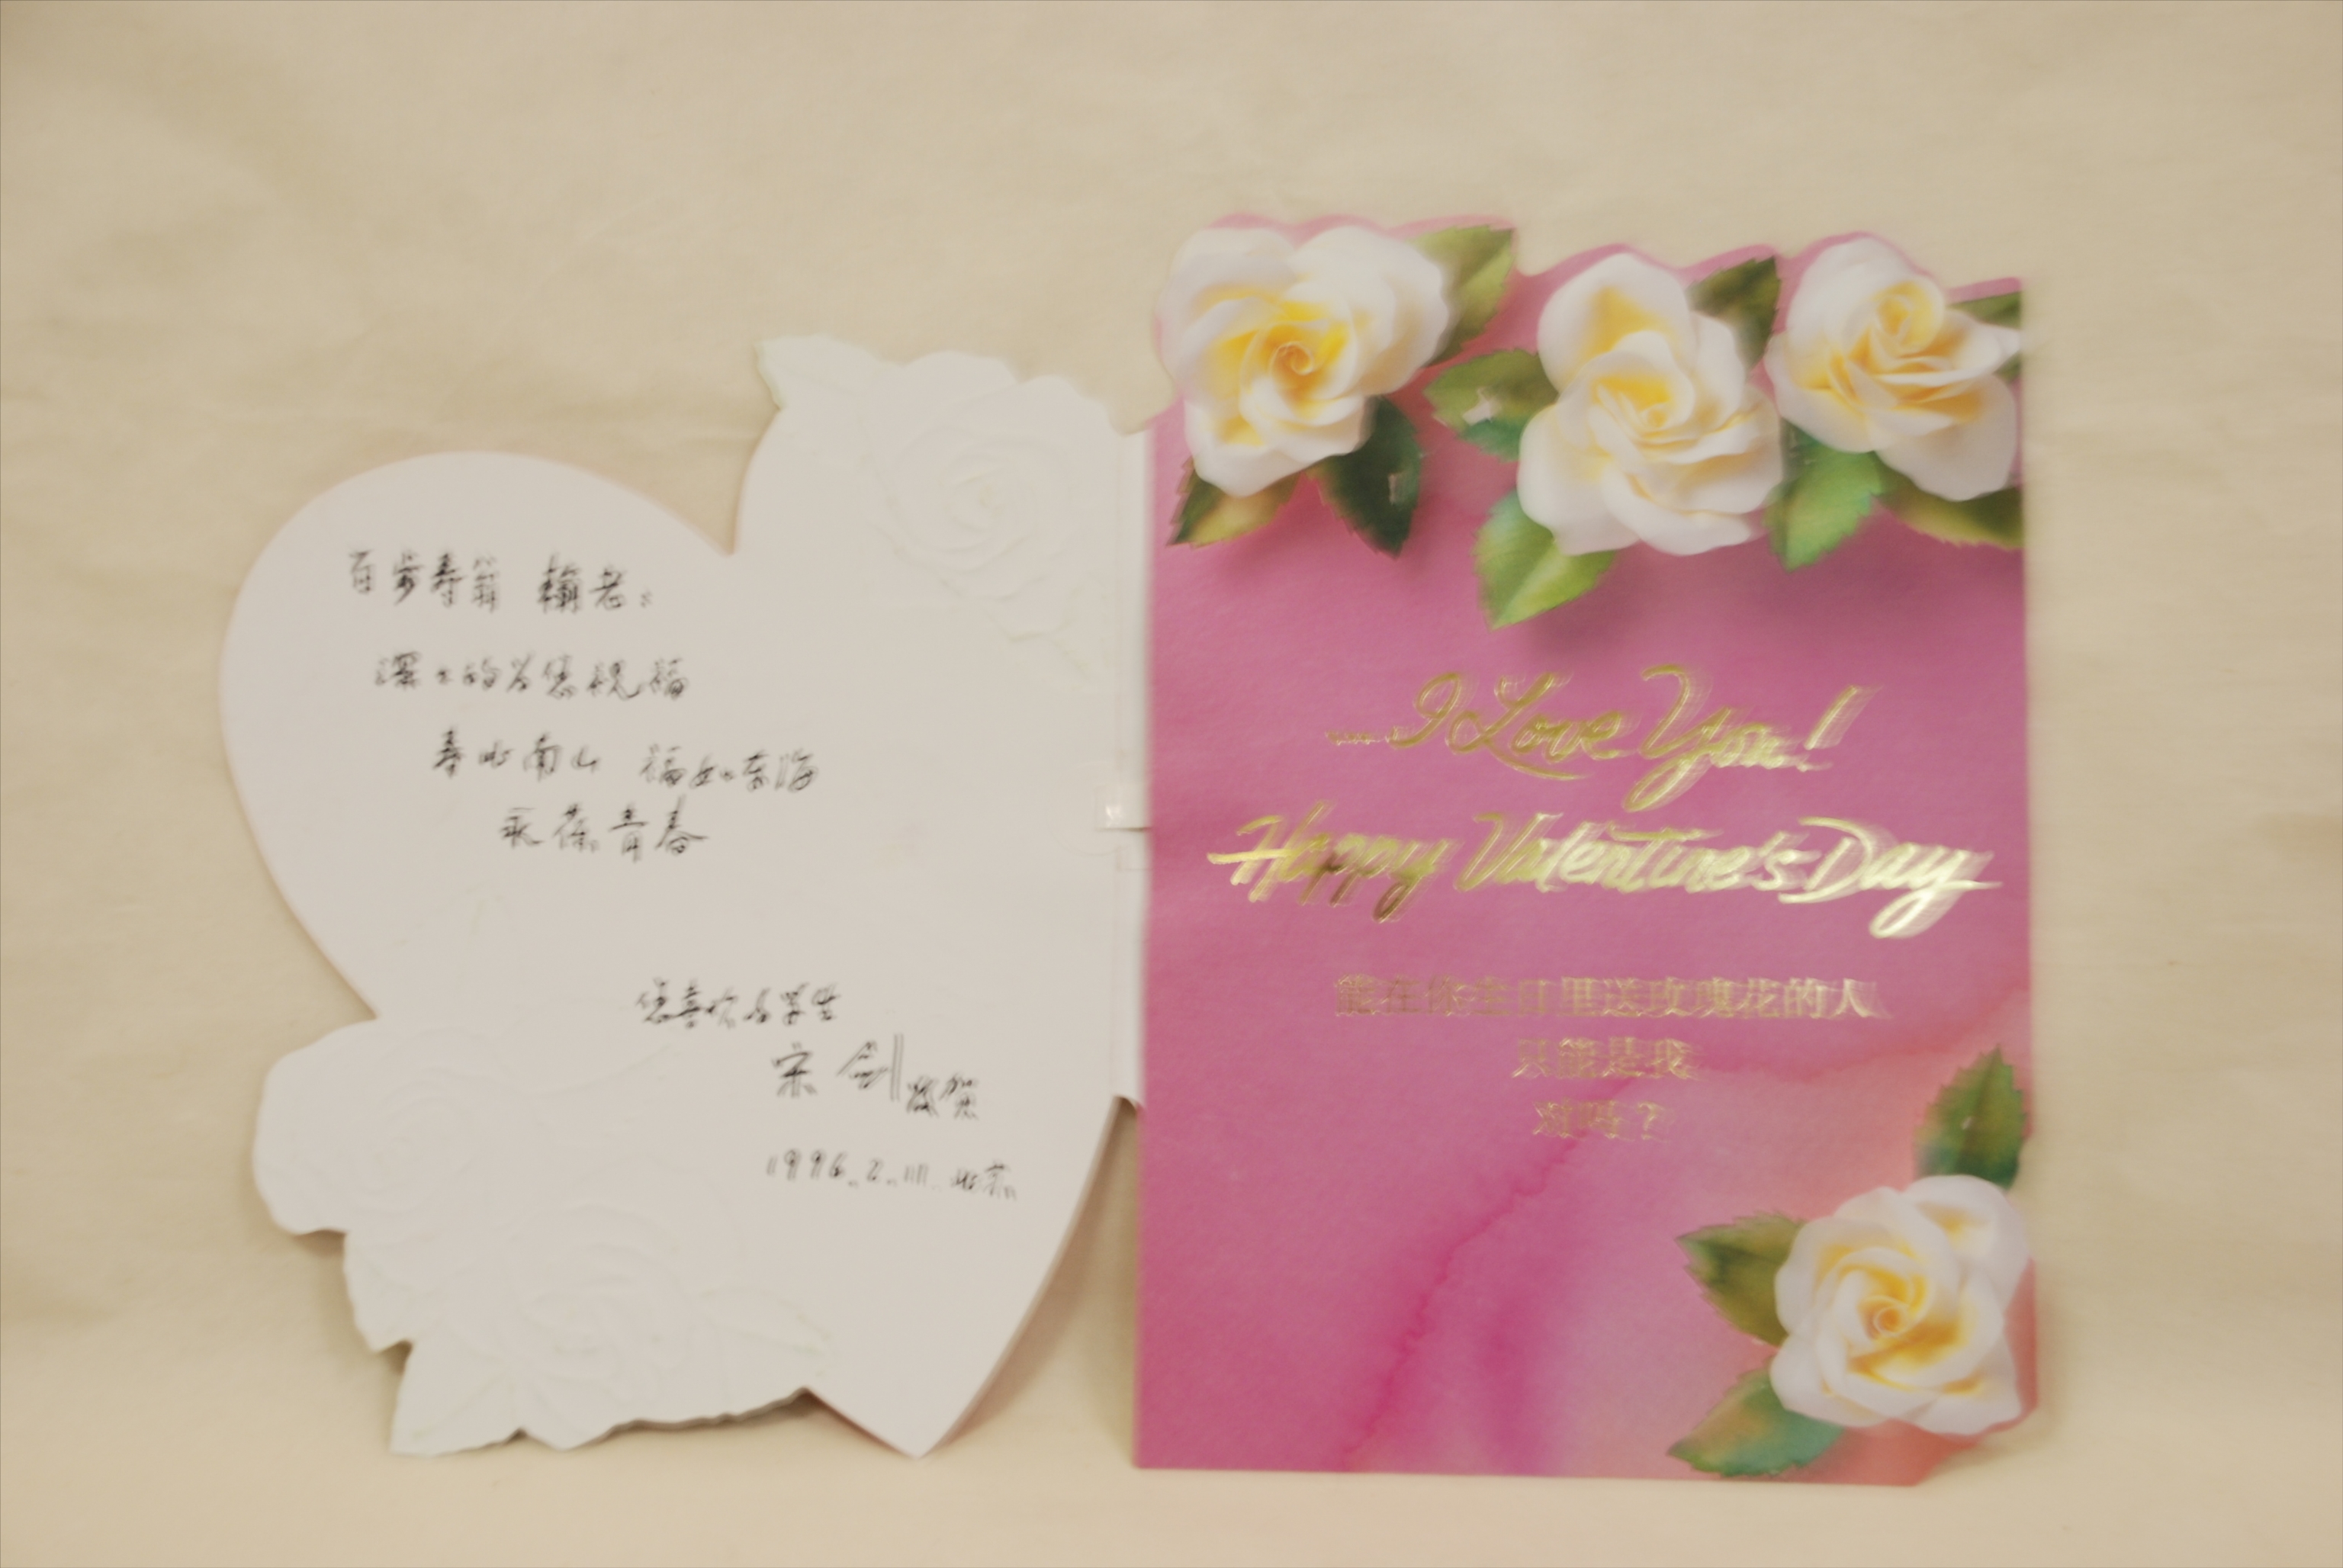 百岁寿翁 翰老：
深深的为您祝福
寿比南山 福如东海
永葆青春
您喜欢的学生
宋剑 敬贺
1996.2.11. 北京
......I Love You!
Happy Valentine's Day
能在你生日里送玫瑰花的人
只能是我
对吗？